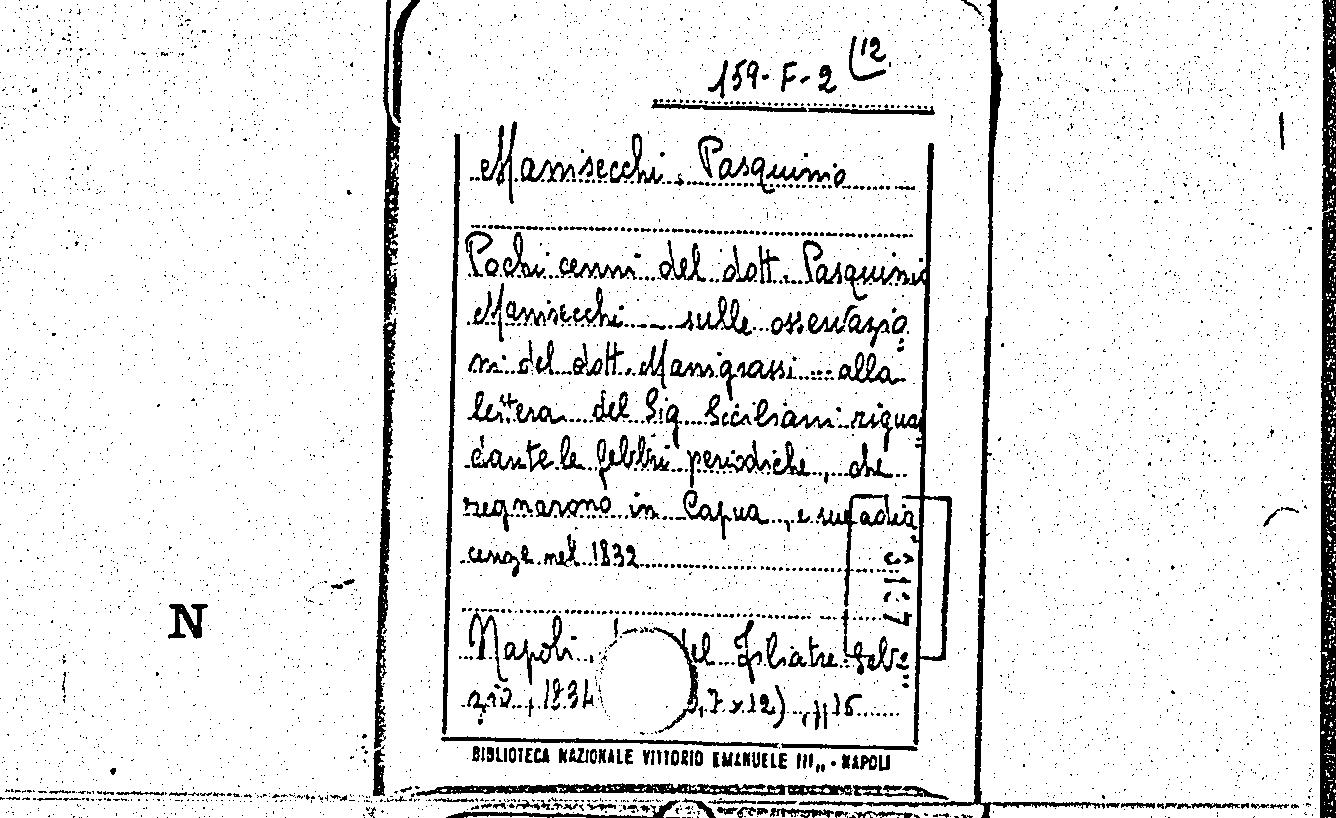 159-F-2 (12
Manisecchi, Pasquinio
Pochi cenni del dott. Pasquinio
Manisecchi ... sulle osservazio
ni del dott. Manigrassi ... alla
lettera del Sig Siciliani riguar
dante le febbri periodiche, che
regnarono in Capua, e sue adia
cenze nel 1832
N
Napoli, el Filiatre Sebe
zio, 1834 ,7 x 12), 16
BIBLIOTECA NAZIONALE VITTORIO EMANUELE III,, - NAPOLI